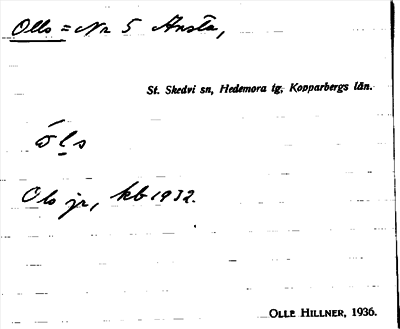 Olls = Nr 5 Ansta,
St. Skedvi sn, Hedemora tg, Kopparbergs län.
óḷs
Ols jr, kb 1932.
OLLE HILLNER, 1936.